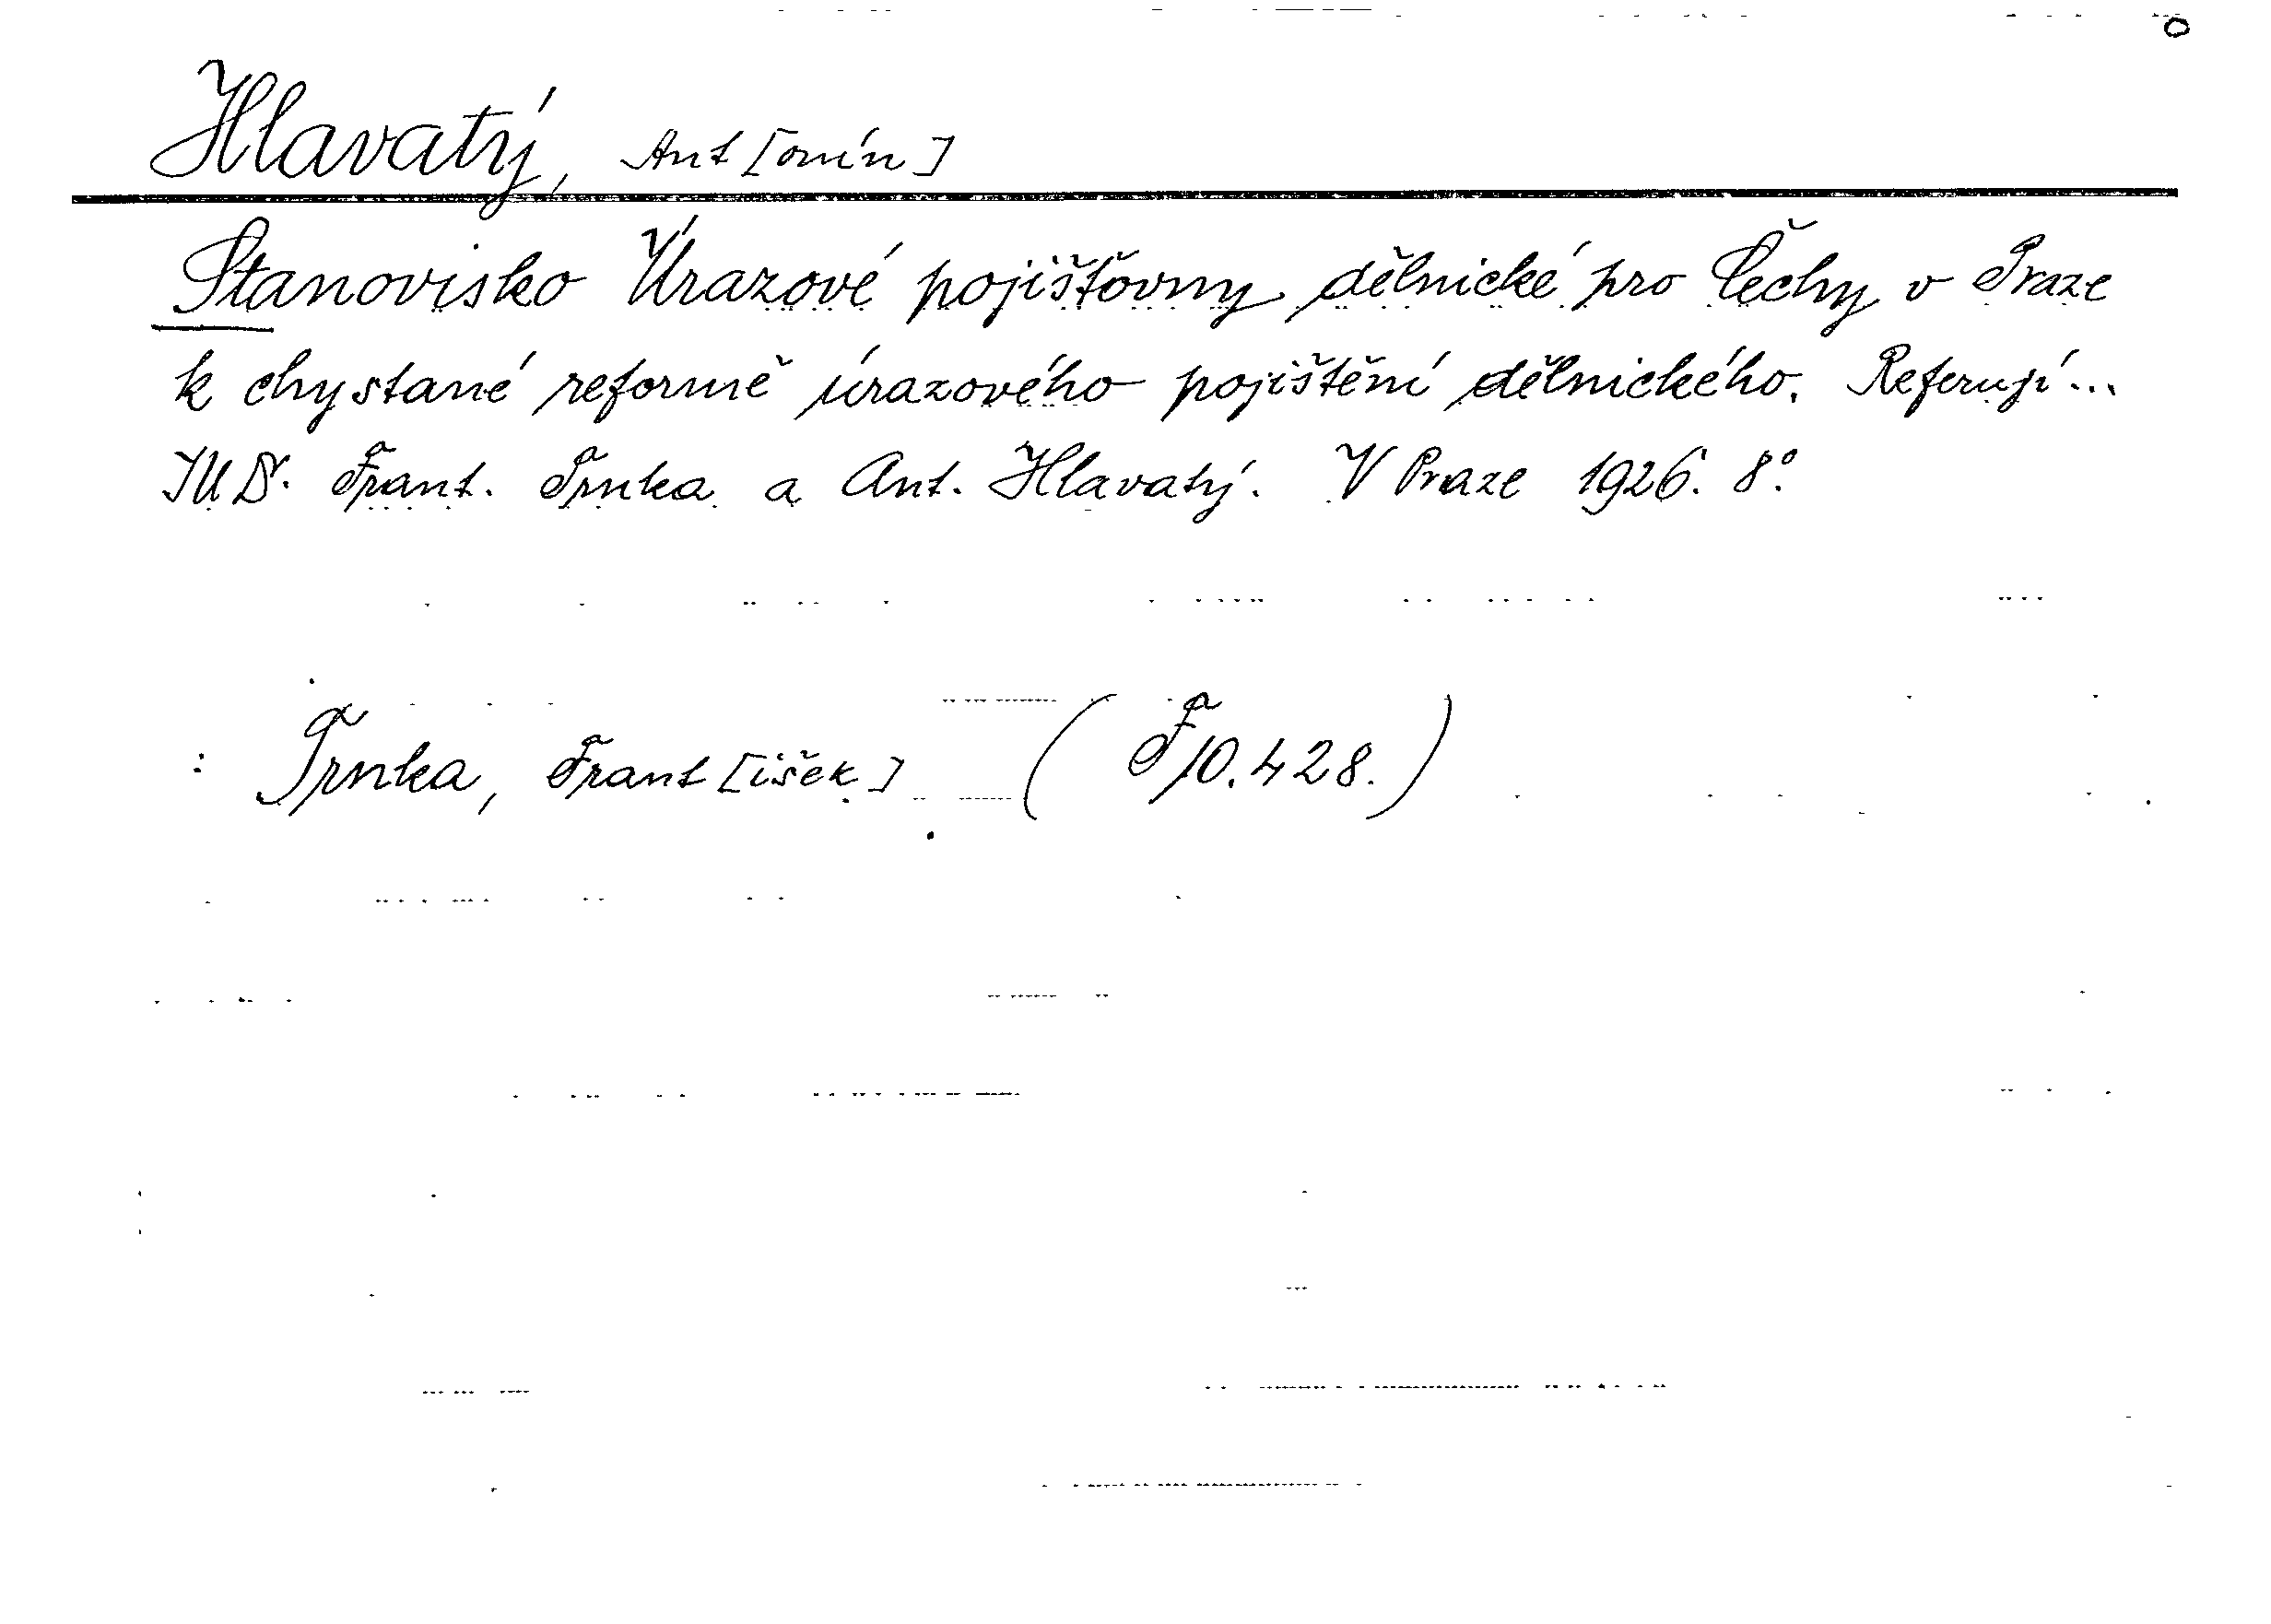 Hlavatý, Ant[onín]
Stanovisko Úrazové pojišťovny dělnické pro Čechy v Praze
k chystané reformě úrazového pojištění dělnického. Referují...
JUDr. Frant. Trnka a Ant. Hlavatý. V Praze 1926. 8°.
: Trnka, Frant[išek] (F 10.428.)